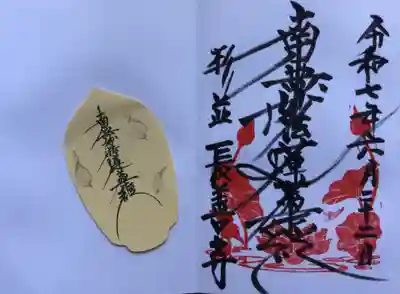 令和七年六月二十二日
南無妙法蓮華経
杉並 長善寺
南無妙法蓮華経